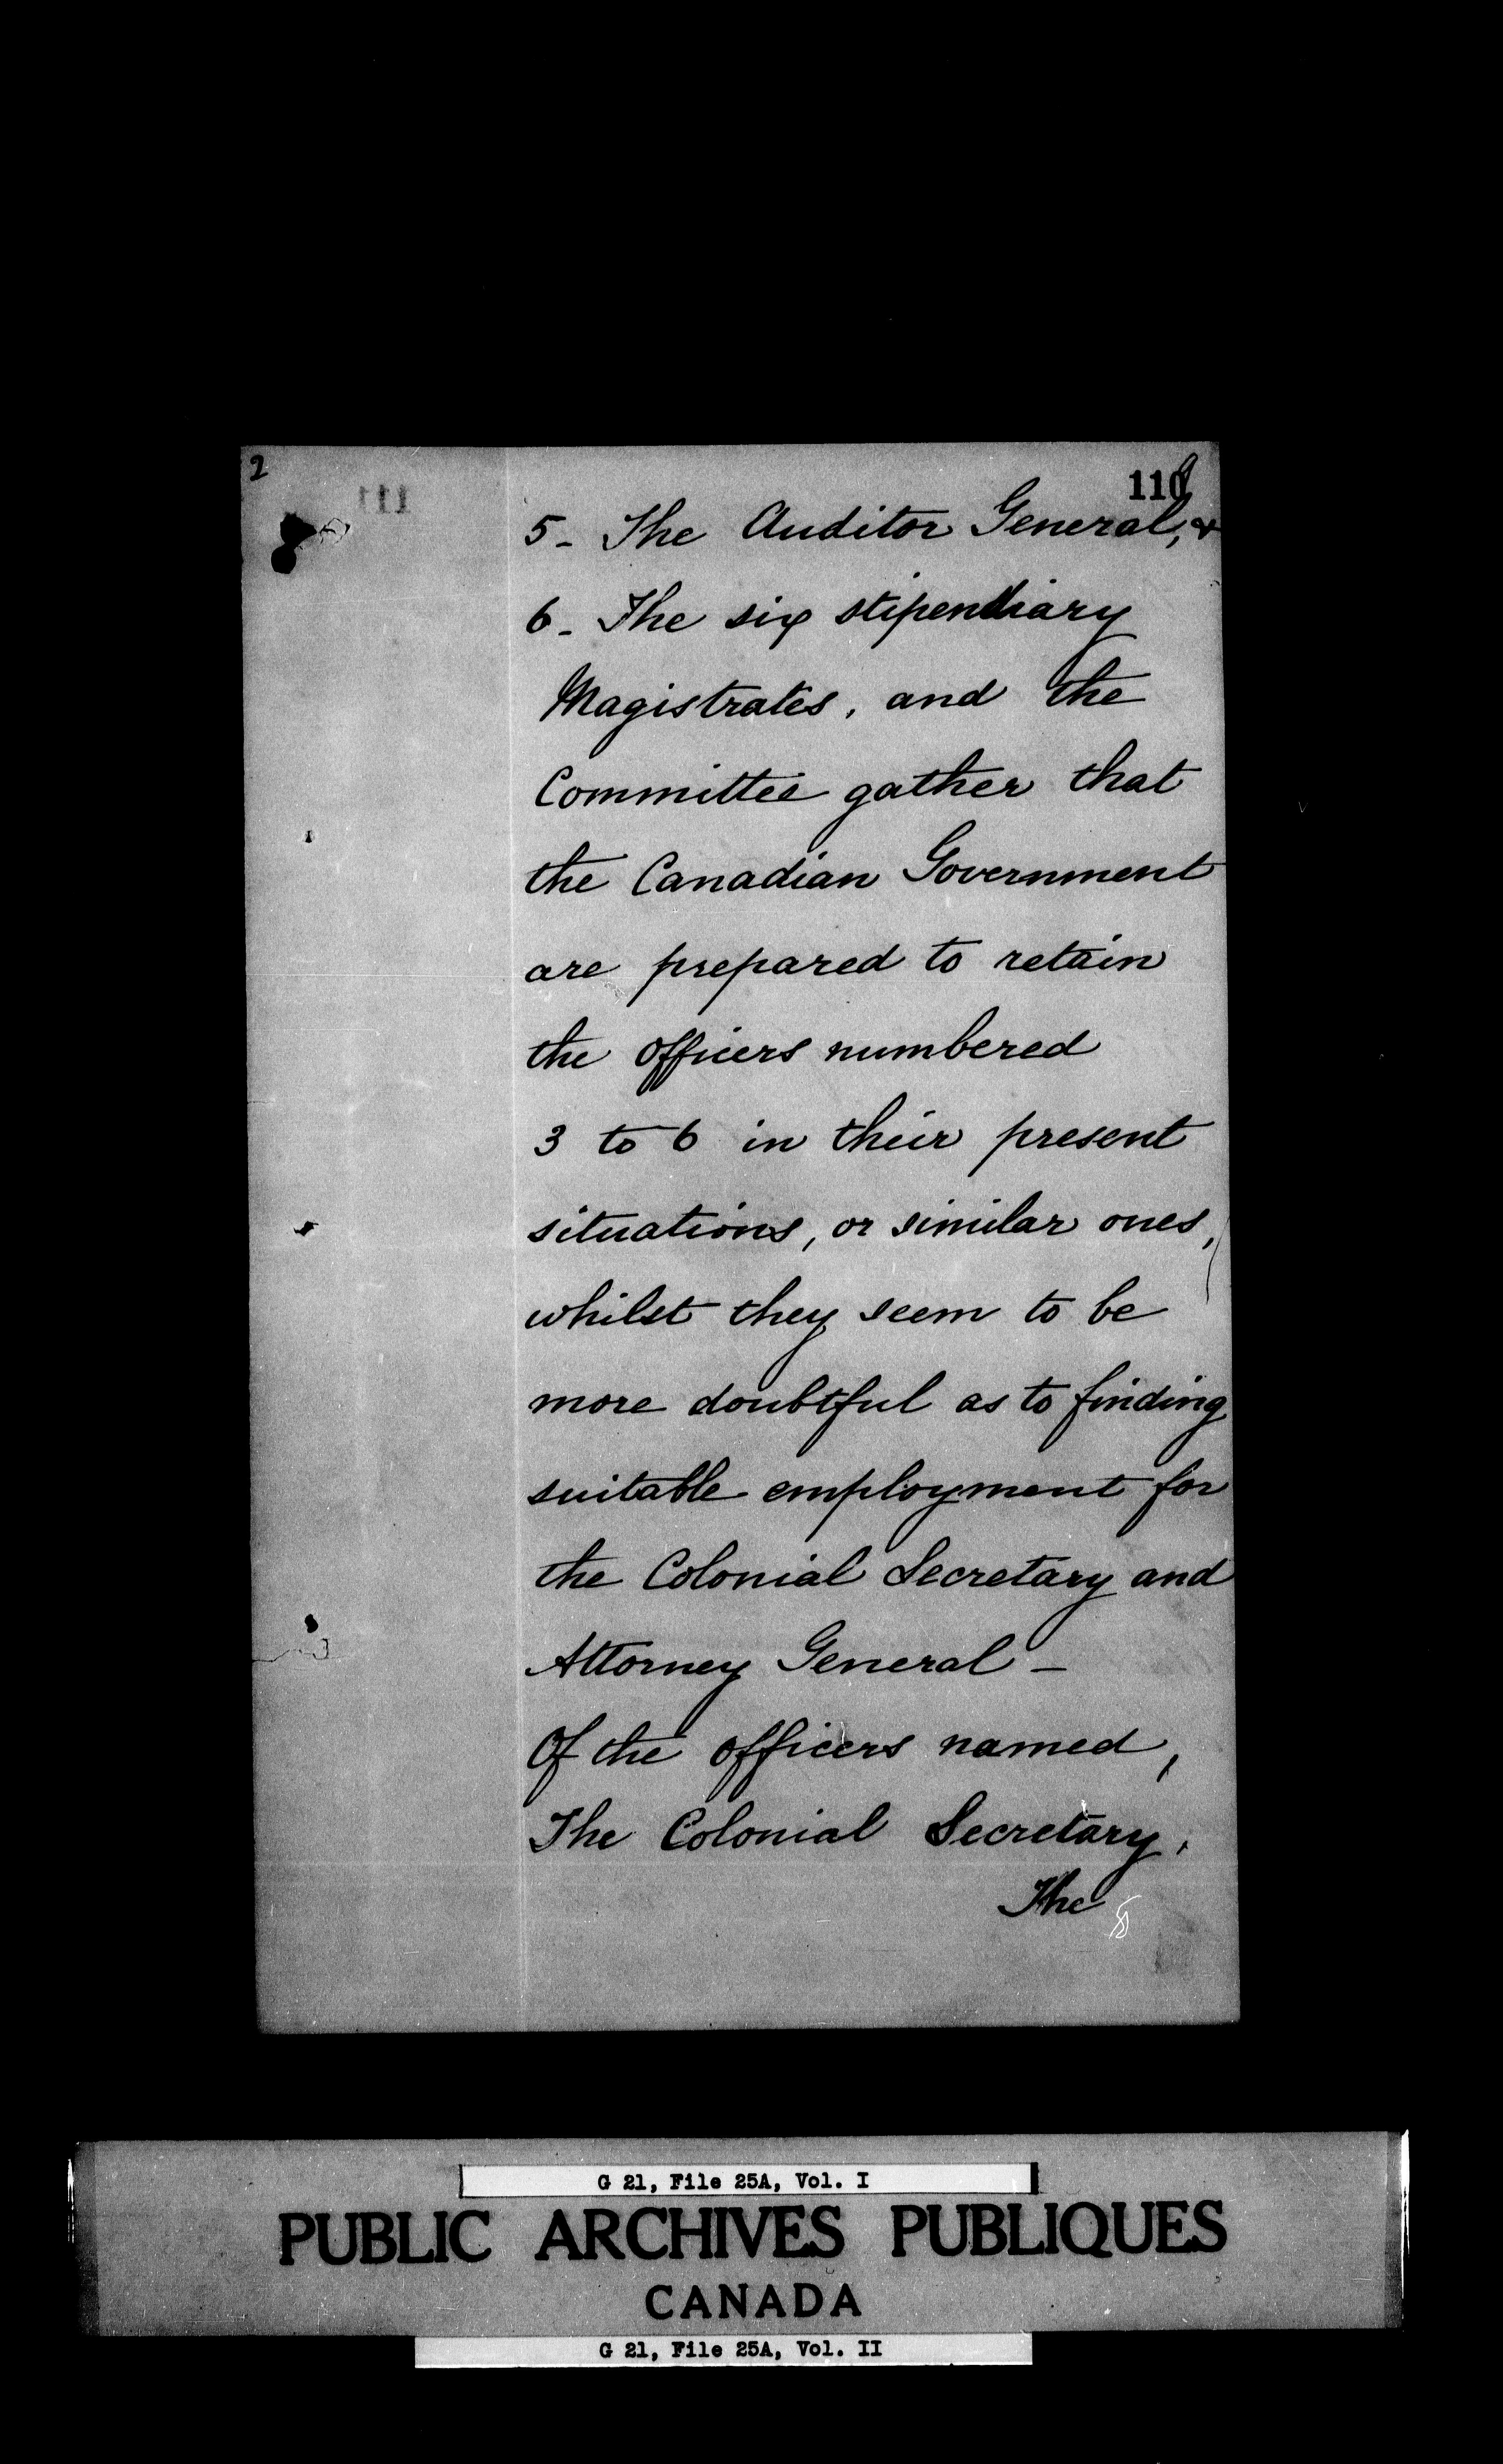 2
110
111
5 - The Auditor General, &
6 - The six stipendiary
Magistrates, and the
Committee gather that
the Canadian Government
are prepared to retain
the officers numbered
3 to 6 in their present
situations, or similar ones,
whilst they seem to be
more doubtful as to finding
suitable employment for
the Colonial Secretary and
Attorney General -
Of the officers named,
The Colonial Secretary,
The
G 21, File 25A, Vol. I
PUBLIC ARCHIVES PUBLIQUES
CANADA
G 21, File 25A, Vol. II